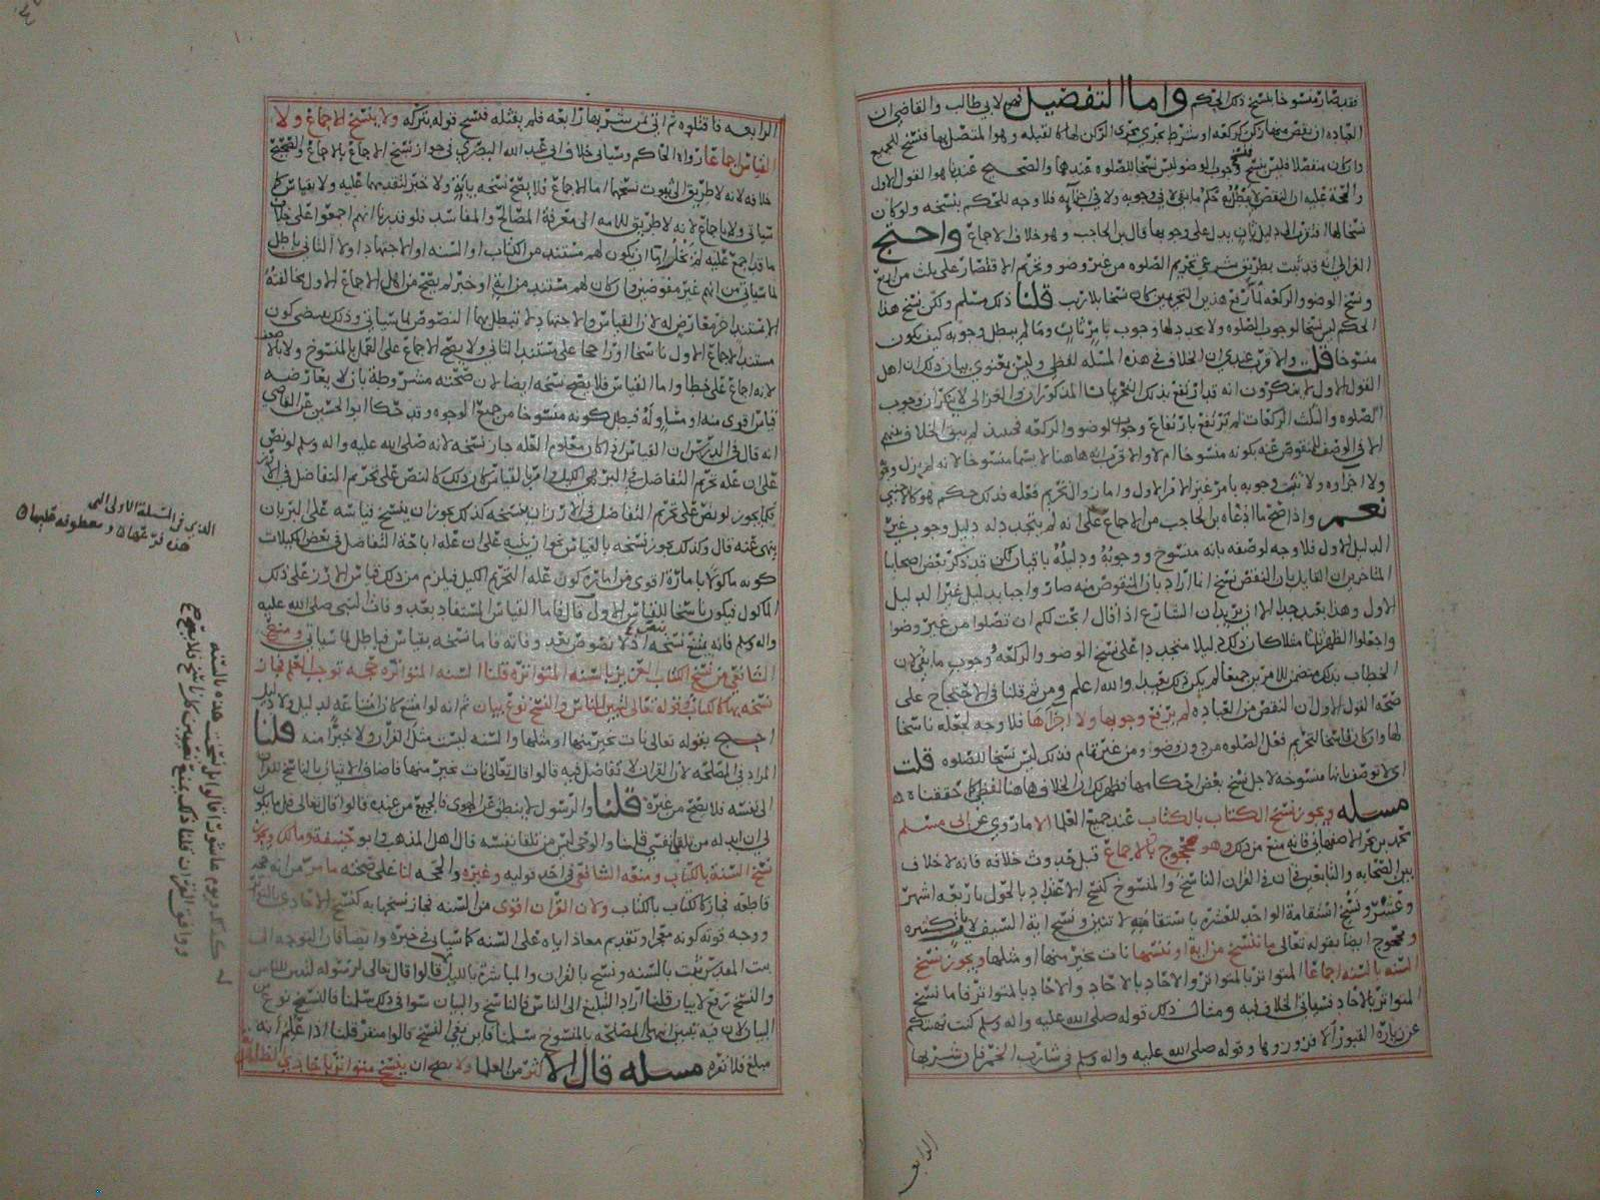 فقد صار منسوخا بنسخ ذلك الحكم واما التفضيل فهو لابي طالب والقاضي ان
العباده ان نقص منها ركن كركعه او شرط يجري مجرى الركن لها كالقبله وهو المتصل بها فنسخ للجميع
وان كان منفصلا فليس بنسخ فنسخ وجوب الوضو ليس نسخا للصلوه عندهما والصحيح عندنا هو القول الاول
والحجة عليه ان النقص لا يبطل به حكم ما بقي لا في وجوبه ولا في اجزآيه فلا وجه للحكم بنسخه ولو كان
نسخا لها افتقرت الى دليل ثان يدل على وجوبها قال بن الحاجب وهو خلاف الاجماع واحتج
الغزالي انه قد ثبت بطريق شرعي تحريم الصلوه من غير وضو وتحريم الاقتصار على ثلث من اربع
ونسخ الوضو والركعه لما رفع هذين التحريمين كان نسخا بلا ريب قلنا ذلك مسلم ولكن نسخ هذا
الحكم ليس نسخا لوجوب الصلوه ولا يحدد لها وجوب بامر ثان وما لم يبطل وجوبه كيف يكون
منسوخا قلت والاقرب عندي ان الخلاف في هذه المسله لفظي وليس بمعنوي بيان ذلك ان اهل
القول الاول لا ينكرون انه قد ارتفع بذلك التحريمان المذكوران والغزالي لا ينكر ان وجوب
الصلوه والثلث الركعات لم ترتفع بارتفاع وجوب الوضو والركعه فحينئذ لم يبق الخلاف بينهم
الا في الوصف المنقوص عنه بكونه منسوخا ام لا والاقرب انه هاهنا لا يسما منسوخا لانه لم يزل وجوبه
ولا اجزآوه ولا ثبت وجوبه بامر غير الامر الاول وامازوال تحريم فعله فذلك حكم هو كالاجنبي
نعم واذا صح ما ادعاه بن الحاجب من الاجماع على انه لم يتجدد له دليل وجوب غير
الدليل الاول فلا وجه لوصفه بانه منسوخ ووجوبه ودليله باقيان لكن قد ذكر بعض اصحابنا
المتاخرين ان القايل بان النقص نسخ انما اراد بان المنقوص منه صار واجبا بدليل غير الدليل
الاول وهذا بعيد جدا الا ان يريد ان الشارع اذا قال ابحت لكم ان تصلوا من غير وضوا
واجعلوا الظهر ثلثا مثلا كان ذلك دليلا متجددا على نسخ الوضو والركعه ووجوب ما بقي لان
الخطاب بذلك متضمن للامرين جميعا لم يكن ذلك ببعيد والله اعلم ومن ثم قلنا في الاحتجاج على
صحة القول الاول ان النقص من العباده لم يرفع وجوبها ولا اجزآها فلا وجه لجعله ناسخا
لها وان كان ناسخا لتحريم فعل الصلوه من دون وضوا ومن غير تمام فذلك ليس نسخا للصلوه قلت
اي لا توصف بانها منسوخه لاجل نسخ بعض احكامها فظهر لك ان الخلاف هاهنا لفظي كما حققنا ه
مسله ويجوز نسخ الكتاب بالكتاب عند جميع العلما الا ما روي عن ابي مسلم
محمد بن بحر الاصفهاني فانه منع من ذلك وهو محجوج بالاجماع قبل حدوث خلافه فانه لا خلاف
بين الصحابه والتابعين في ان في القران الناسخ والمنسوخ كنسخ الاعتداد بالحول باربعه اشهر
وعشر ونسخ استقامة الواحد للعشره باستقامته لاثنين ونسخ اية السيف لآيات كثيره
ومحجوج ايضا بقوله تعالى ما ننسخ من اية او ننسها نات بخير منها او مثلها ويجوز نسخ
السنه بالسنه اجماعا المتواتر بالمتواتر والاحاد بالاحاد والاحاد بالمتواتر فاما نسخ
المتواتر بالاحاد فسياتي الخلاف فيه ومثال ذلك قوله صلى الله عليه واله وسلم كنت نهيتكم
عن زيارة القبور الا فزوروها وقوله صلى الله عليه واله وسلم في شارب الخمر فان شربها
الرابعه
الرابعه فاقتلوه ثم اتي بمن شربها رابعه فلم يقتله فنسخ قوله بتركه ولا ينسخ الاجماع ولا
القياس اجماعا رواه الحاكم وسياتي خلاف ابي عبد الله البصري في جواز نسخ الاجماع بالاجماع والصحيح
خلافه لانه لا طريق الى ثبوت نسخهما اما الاجماع فلا يصح نسخه بآية ولا خبر لتقدمهما عليه ولا بقياس كما
سياتي ولا باجماع لانه لا طريق للامه الى معرفة المصالح والمفاسد فلو قدرنا انهم اجمعوا على خلاف
ما قد اجمع عليه لم يخل اما ان يكون لهم مستند من الكتاب او السنه او الاجتهاد او لا الثاني باطل
لما سياتي من انهم غير مفوضين وان كان لهم مستند من اية او خبر لم يصح من اهل الاجماع الاول مخالفته
الا لمستند اخر معارض له لان القياس والاجتهاد لا تبطل بهما النصوص لما سياتي وذلك يقتضي كون
مستند الاجماع الاول ناسخا او راجحا على مستند الثاني ولا يصح الاجماع على العمل بالمنسوخ ولا بالاضعف
لانه اجماع على خطا واما القياس فلا يصح نسخه ايضا لان صحته مشروطة بان لا يعارضه
قياس اقوى منه او مساو له فيبطل كونه منسوخا من جميع الوجوه وقد حكا ابو الحسين عن القاضي
انه قال في الدرس ان القياس ان كان معلوم العله جاز نسخه لانه صلى الله عليه واله وسلم لو نص
على ان علة تحريم التفاضل في البر هي الكيل وامر بالقياس كان ذلك كالنص على تحريم التفاضل في الارز
فكما يجوز لو نص على تحريم التفاضل في الارز ان ينسخه كذلك يجوز ان ينسخ قياسه على البر بان
ينهى عنه قال وكذلك يجوز نسخه بالقياس نحو ان ينبه على ان علة اباحة التفاضل في بعض المكيلات
كونه ماكولا بامارة اقوى من امارة كون علة التحريم الكيل فيلزم من ذلك قياس الارز على ذلك
الماكول فيكون ناسخا للقياس الاول قال فاما القياس المستفاد بعد وفاة النبي صلى الله عليه
واله وسلم فانه يمتنع نسخه بنص اذ لا نصوص بعد وفاته فاما نسخه بقياس فباطل لما سياتي ومنع
الشافعي من نسخ الكتاب العزيز بالسنه المتواتره قلنا السنه المتواتره حجه توجب العلم فجاز
نسخه بها كالكتاب وقوله تعالى لتبين للناس والنسخ نوع بيان ثم انه لو امتنع كان امتناعه لدليل ولا دليل
احتج بقوله تعالى نات بخير منها او مثلها والسنه ليست مثل القران ولا خيرا منه قلنا
المراد في المصلحه لان القران لا تفاضل فيه قالوا قال تعالى نات بخير منها فاضاف الاتيان بالناسخ للقران
الى نفسه فلا يصح من غيره قلنا والرسول لا ينطق عن الهوى فالجميع من عنده قالوا قال تعالى قل ما يكون
لي ان ابدله من تلقا نفسي قلنا والوحي ليس من تلقا نفسه قال اهل المذهب وابو حنيفه ومالك ويجوز
نسخ السنة بالكتاب ومنعه الشافعي في احد قوليه وغيره والحجه لنا على صحته ما مر من انه حجه
قاطعه فجاز كالكتاب بالكتاب ولان القران اقوى من السنه فجاز نسخها به كنسخ الاحادي بالمتواتر
ووجه قوته كونه معجزا وتقديم معاذ اياه على السنة كما سياتي في خبره وايضا فان التوجه الى
بيت المقدس ثبت بالسنه ونسخ بالقران والمباشرة بالليل قالوا قال تعالى لرسوله لتبين للناس
والنسخ رفع لا بيان قلنا اراد التبليغ الى الناس فالناسخ والبيان سوا في ذلك سلمنا فالنسخ نوع من
البيان لان فيه تبيين انتهى المصلحه بالمنسوخ سلمنا فاين نفي النسخ قالوا منفر قلنا اذا علم انه
مبلغ فلا نفره مسله قال الاكثر من العلما ولا يصح ان ينسخ متواتر باحادي
الذي في المسلة الاولى التي
هذه فرعها ومعطوفه عليها